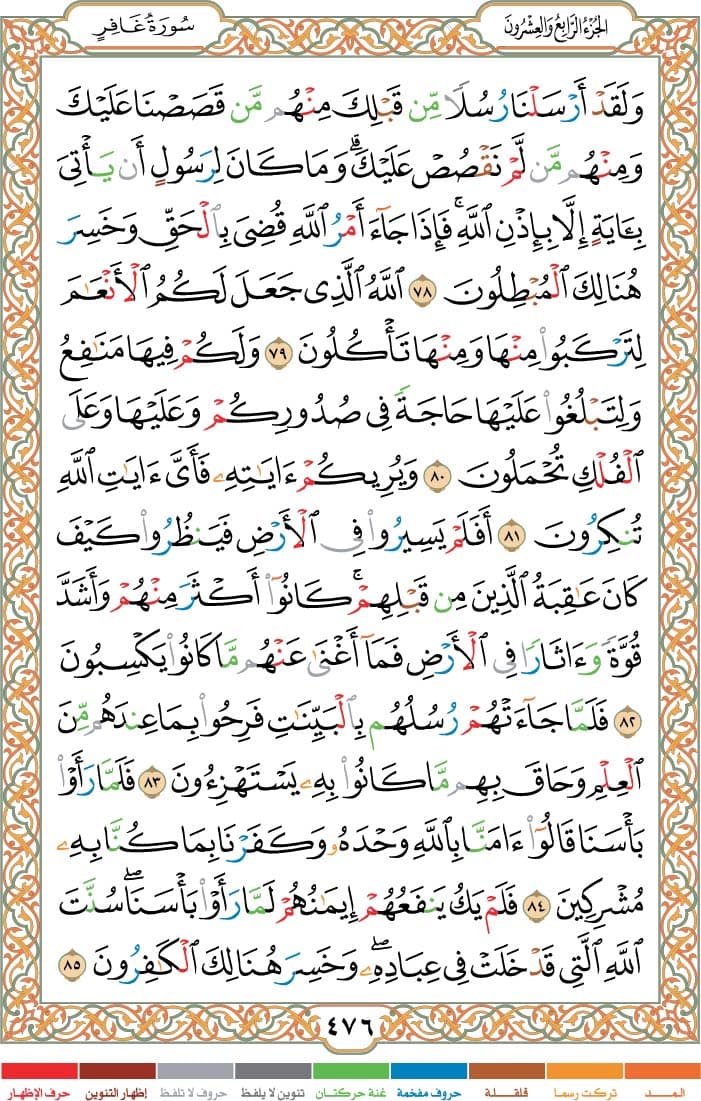 الجُزْءُ الرَّابِعُ وَالعِشْرُونَ
سُورَةُ غَافِرٍ
وَلَقَدْ أَرْسَلْنَا رُسُلًا مِّن قَبْلِكَ مِنْهُم مَّن قَصَصْنَا عَلَيْكَ
وَمِنْهُم مَّن لَّمْ نَقْصُصْ عَلَيْكَ ۗ وَمَا كَانَ لِرَسُولٍ أَن يَأْتِىَ
بِـَٔايَةٍ إِلَّا بِإِذْنِ ٱللَّهِ ۚ فَإِذَا جَآءَ أَمْرُ ٱللَّهِ قُضِىَ بِٱلْحَقِّ وَخَسِرَ
هُنَالِكَ ٱلْمُبْطِلُونَ ٧٨ ٱللَّهُ ٱلَّذِى جَعَلَ لَكُمُ ٱلْأَنْعَٰمَ
لِتَرْكَبُوا۟ مِنْهَا وَمِنْهَا تَأْكُلُونَ ٧٩ وَلَكُمْ فِيهَا مَنَٰفِعُ
وَلِتَبْلُغُوا۟ عَلَيْهَا حَاجَةً فِى صُدُورِكُمْ وَعَلَيْهَا وَعَلَى
ٱلْفُلْكِ تُحْمَلُونَ ٨٠ وَيُرِيكُمْ ءَايَٰتِهِۦ فَأَىَّ ءَايَٰتِ ٱللَّهِ
تُنكِرُونَ ٨١ أَفَلَمْ يَسِيرُوا۟ فِى ٱلْأَرْضِ فَيَنظُرُوا۟ كَيْفَ
كَانَ عَٰقِبَةُ ٱلَّذِينَ مِن قَبْلِهِمْ ۚ كَانُوٓا۟ أَكْثَرَ مِنْهُمْ وَأَشَدَّ
قُوَّةً وَءَاثَارًا فِى ٱلْأَرْضِ فَمَآ أَغْنَىٰ عَنْهُم مَّا كَانُوا۟ يَكْسِبُونَ
٨٢ فَلَمَّا جَآءَتْهُمْ رُسُلُهُم بِٱلْبَيِّنَٰتِ فَرِحُوا۟ بِمَا عِندَهُم مِّنَ
ٱلْعِلْمِ وَحَاقَ بِهِم مَّا كَانُوا۟ بِهِۦ يَسْتَهْزِءُونَ ٨٣ فَلَمَّا رَأَوْا۟
بَأْسَنَا قَالُوٓا۟ ءَامَنَّا بِٱللَّهِ وَحْدَهُۥ وَكَفَرْنَا بِمَا كُنَّا بِهِۦ
مُشْرِكِينَ ٨٤ فَلَمْ يَكُ يَنفَعُهُمْ إِيمَٰنُهُمْ لَمَّا رَأَوْا۟ بَأْسَنَا ۖ سُنَّتَ
ٱللَّهِ ٱلَّتِى قَدْ خَلَتْ فِى عِبَادِهِۦ ۖ وَخَسِرَ هُنَالِكَ ٱلْكَٰفِرُونَ ٨٥
٤٧٦
المـــد تركت رسما قلقـلة حروف مفخمة غنة حركتـان تنوين لا يلفظ حروف لا تلفظ إظهار التنوين حرف الإظهار